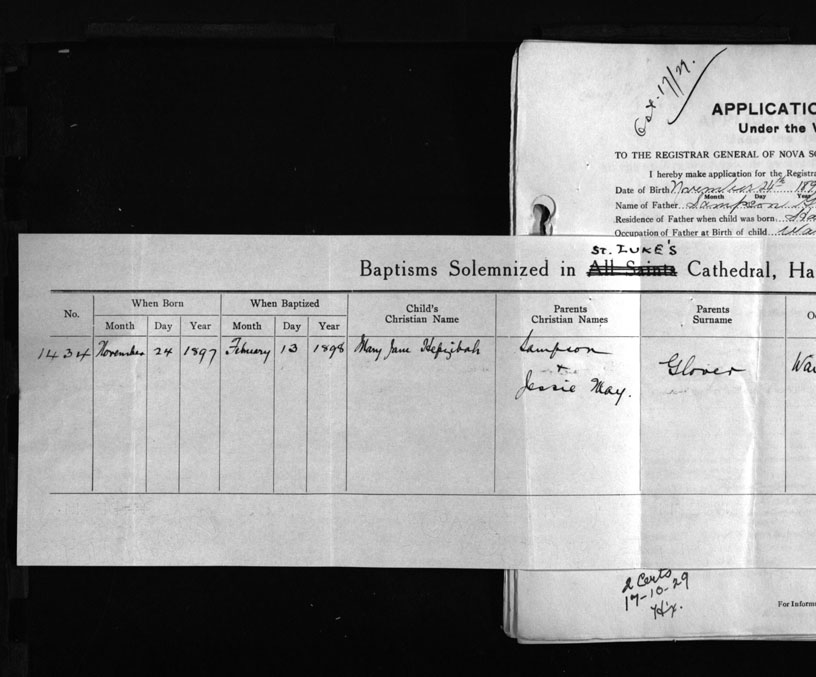 Oct. 17/29.
APPLICATIO
Under the V
TO THE REGISTRAR GENERAL OF NOVA SC
I hereby make application for the Registra
Date of Birth November 24th 189
Month Day Year
Name of Father Sampson
Residence of Father when child was born
Occupation of Father at Birth of child
ST. LUKE'S
Baptisms Solemnized in All Saints Cathedral, Ha
No. When Born When Baptized Child's Christian Name Parents Christian Names Parents Surname
Month Day Year Month Day Year
1434 November 24 1897 February 13 1898 Mary Jane Hepzibah Sampson
+ Glover
Jessie May.
2 Certs
17-10-29
Hx.
For Inform